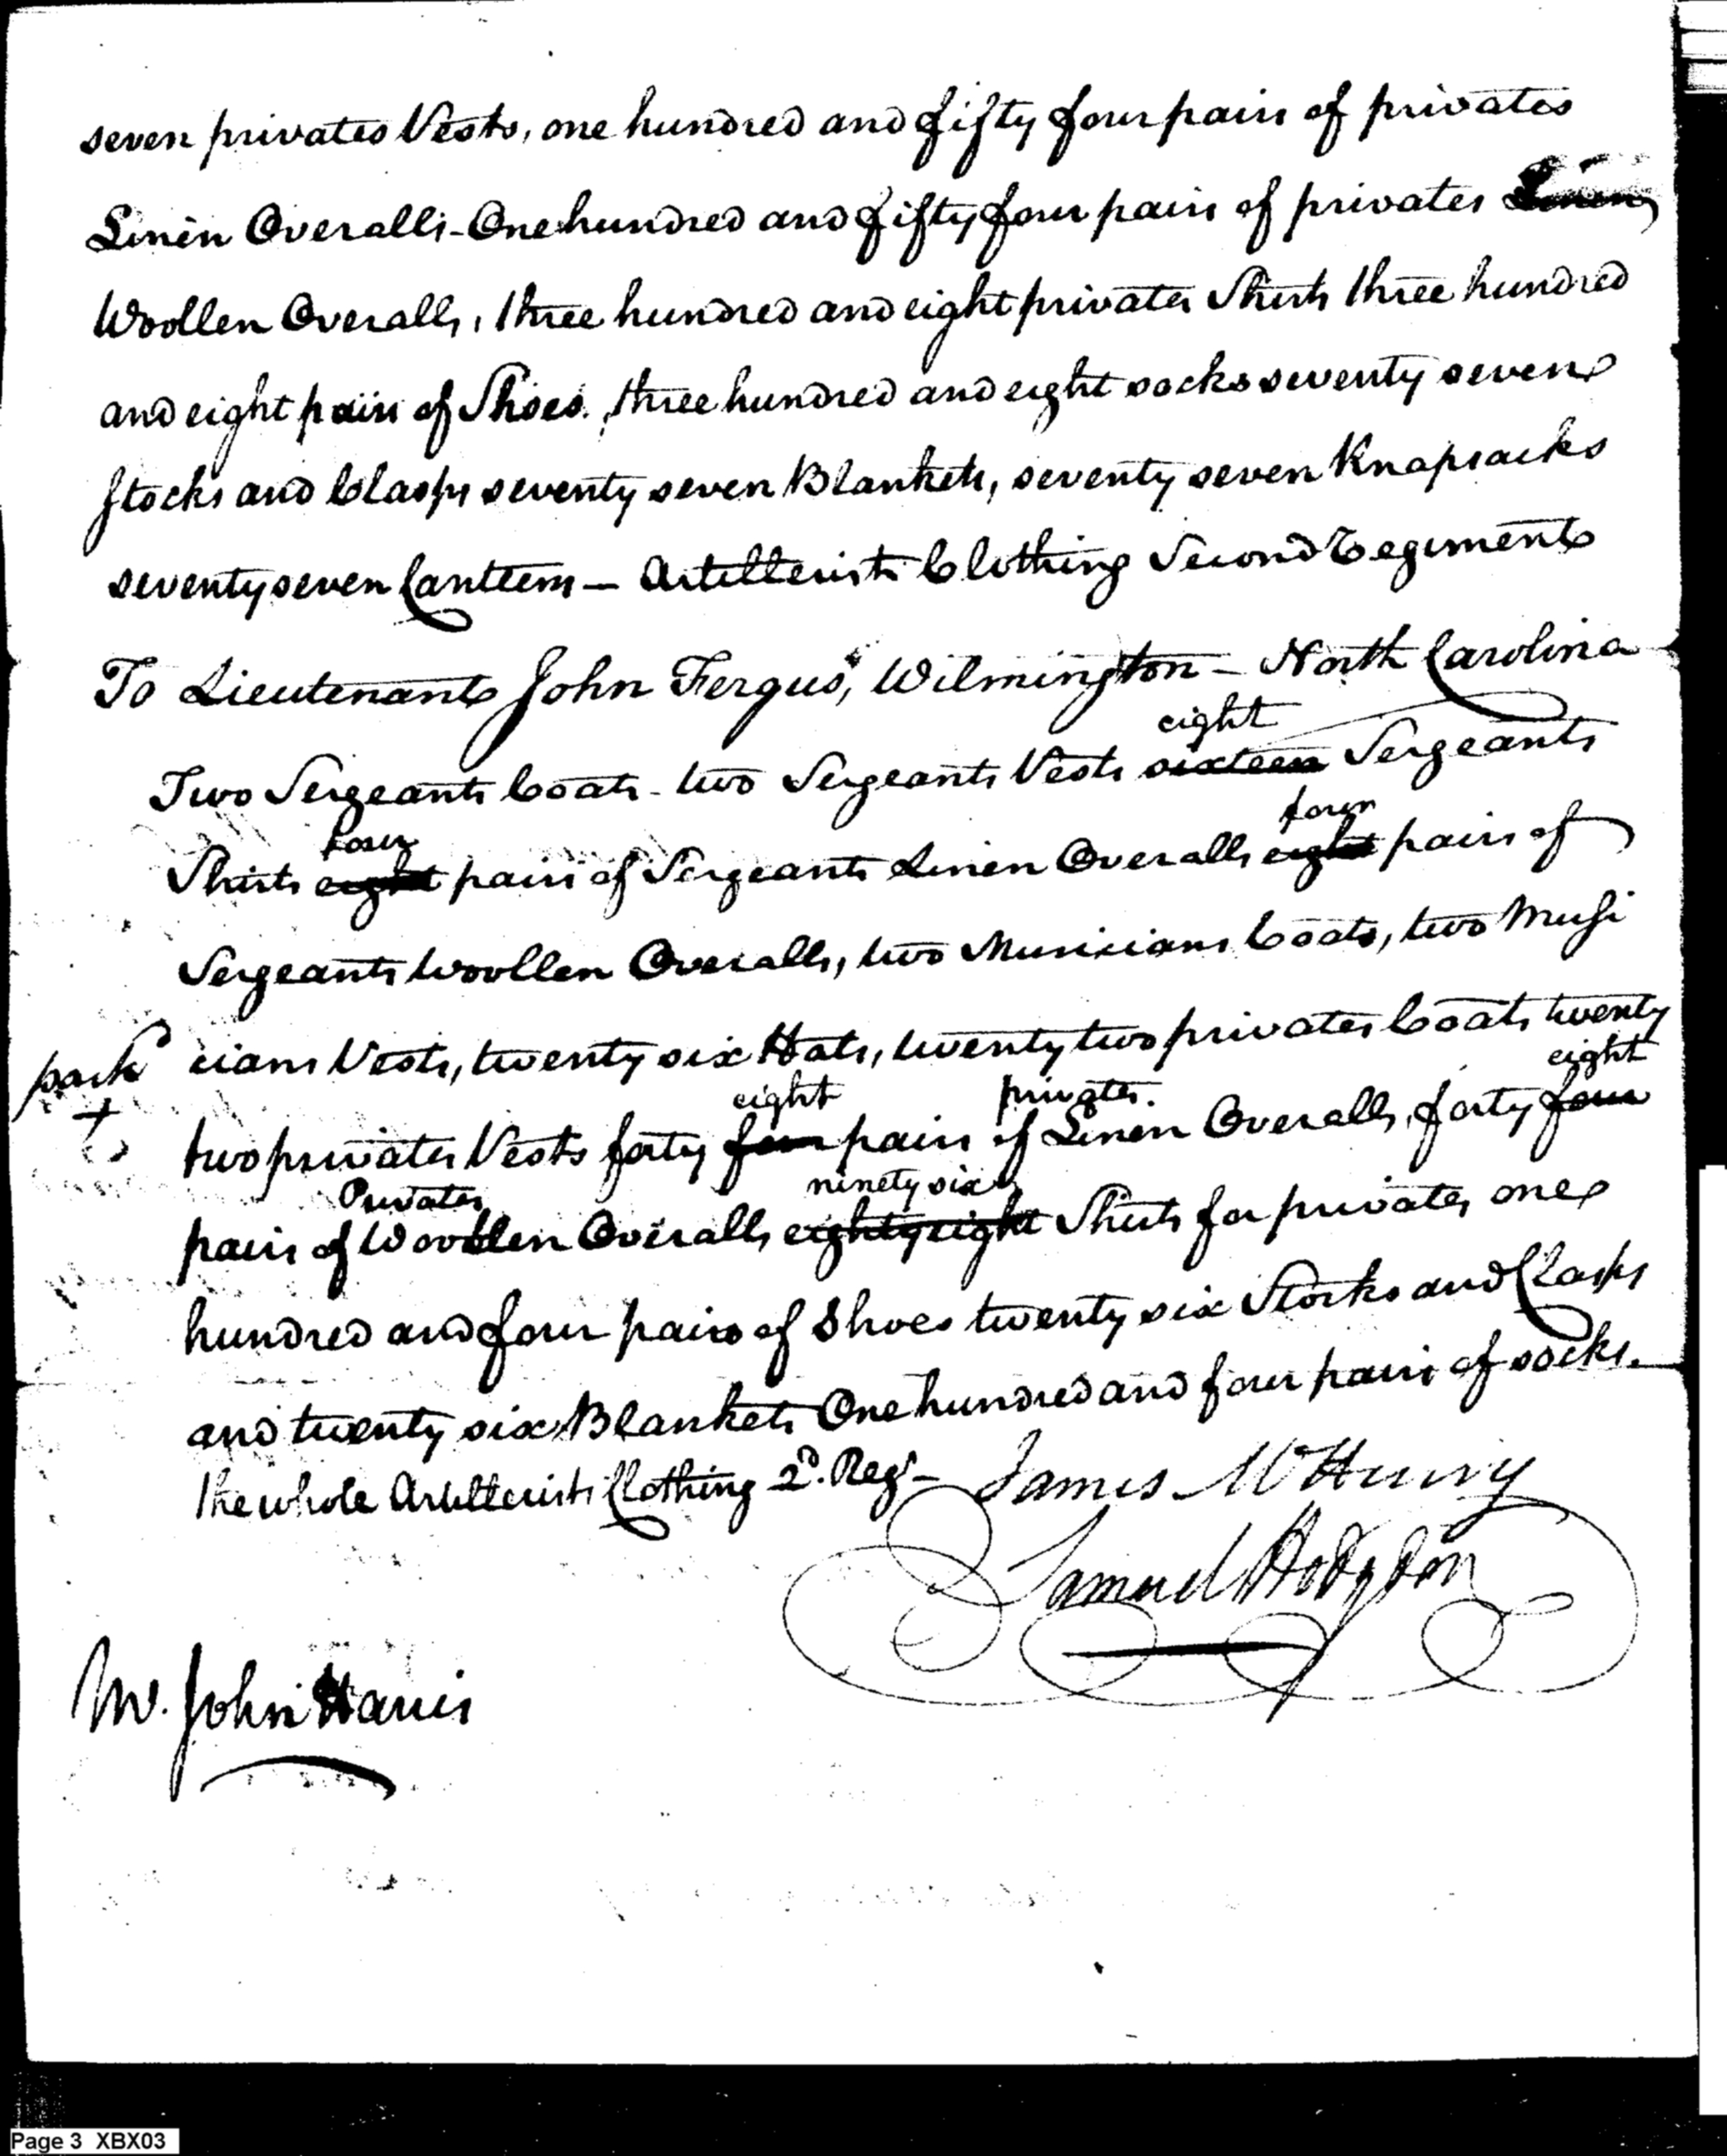 seven privates Vests, one hundred and fifty four pairs of privates
Linen Overalls - One hundred and fifty four pairs of privates Linen
Woollen Overalls, three hundred and eight privates Shirts three hundred
and eight pairs of Shoes. three hundred and eight socks seventy seven
Stocks and Clasps seventy seven Blankets, seventy seven Knapsacks
seventy seven Canteens — Artillerists Clothing Second Regiment
To Lieutenant John Fergus, Wilmington - North Carolina
eight
Two Sergeants Coats - two Sergeants Vests sixteen Sergeants
four four
Shirts eight pairs of Sergeants Linen Overalls eight pairs of
Sergeants Woollen Overalls, two Musicians Coats, two Musi
pack cians Vests, twenty six Hats, twenty two privates Coats twenty
eight privates. eight
two privates Vests forty four pairs of Linen Overalls, forty four
Privates ninety six
pairs of Woollen Overalls eighty eight Shirts for privates one
hundred and four pairs of Shoes twenty six Stocks and Clasps
and twenty six Blankets One hundred and four pairs of socks.
The whole Artillerists Clothing 2d. Regt - James McHenry
Samuel Hodgdon
Mr. John Harris
Page 3 XBX03